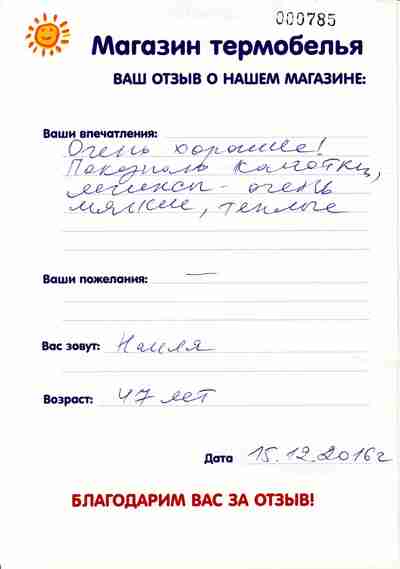 000785
Магазин термобелья
ВАШ ОТЗЫВ О НАШЕМ МАГАЗИНЕ:
Ваши впечатления:
Очень хорошие!
Покупаю колготки,
легинсы - очень
мягкие, теплые
Ваши пожелания: —
Вас зовут: Наиля
Возраст: 47 лет
Дата 15.12.2016г
БЛАГОДАРИМ ВАС ЗА ОТЗЫВ!